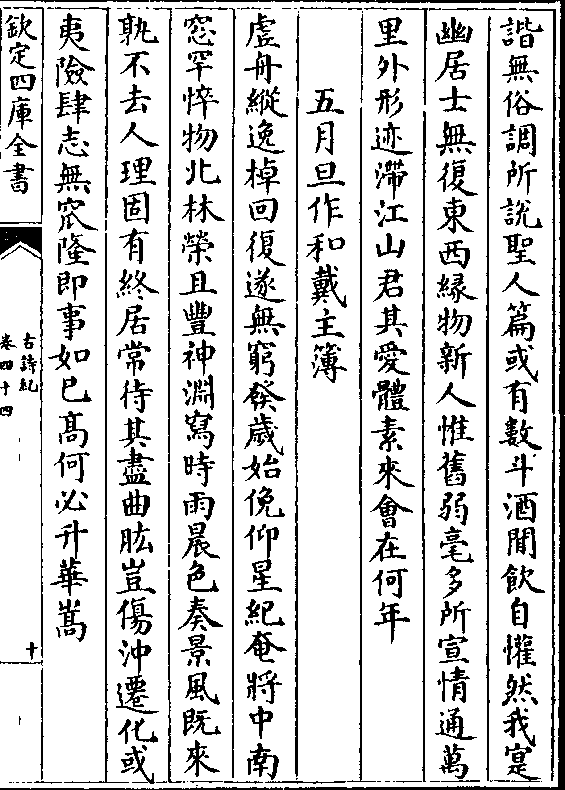 諧無俗調所説聖人篇或有數斗酒閒飲自懽然我寔
幽居士無復東西縁物新人惟舊弱毫多所宣情通萬
里外形迹滯江山君其愛體素來㑹在何年
五月旦作和戴主簿
虛舟縱逸棹回復遂無窮發歲始俛仰星紀奄將中南
窓罕悴物北林榮且豐神淵寫時雨晨色奏景風既來
孰不去人理固有終居常待其盡曲肱豈傷沖遷化或
夷險肆志無窊隆即事如已髙何必升華嵩
欽定四庫全書
古詩紀
卷四十四
十